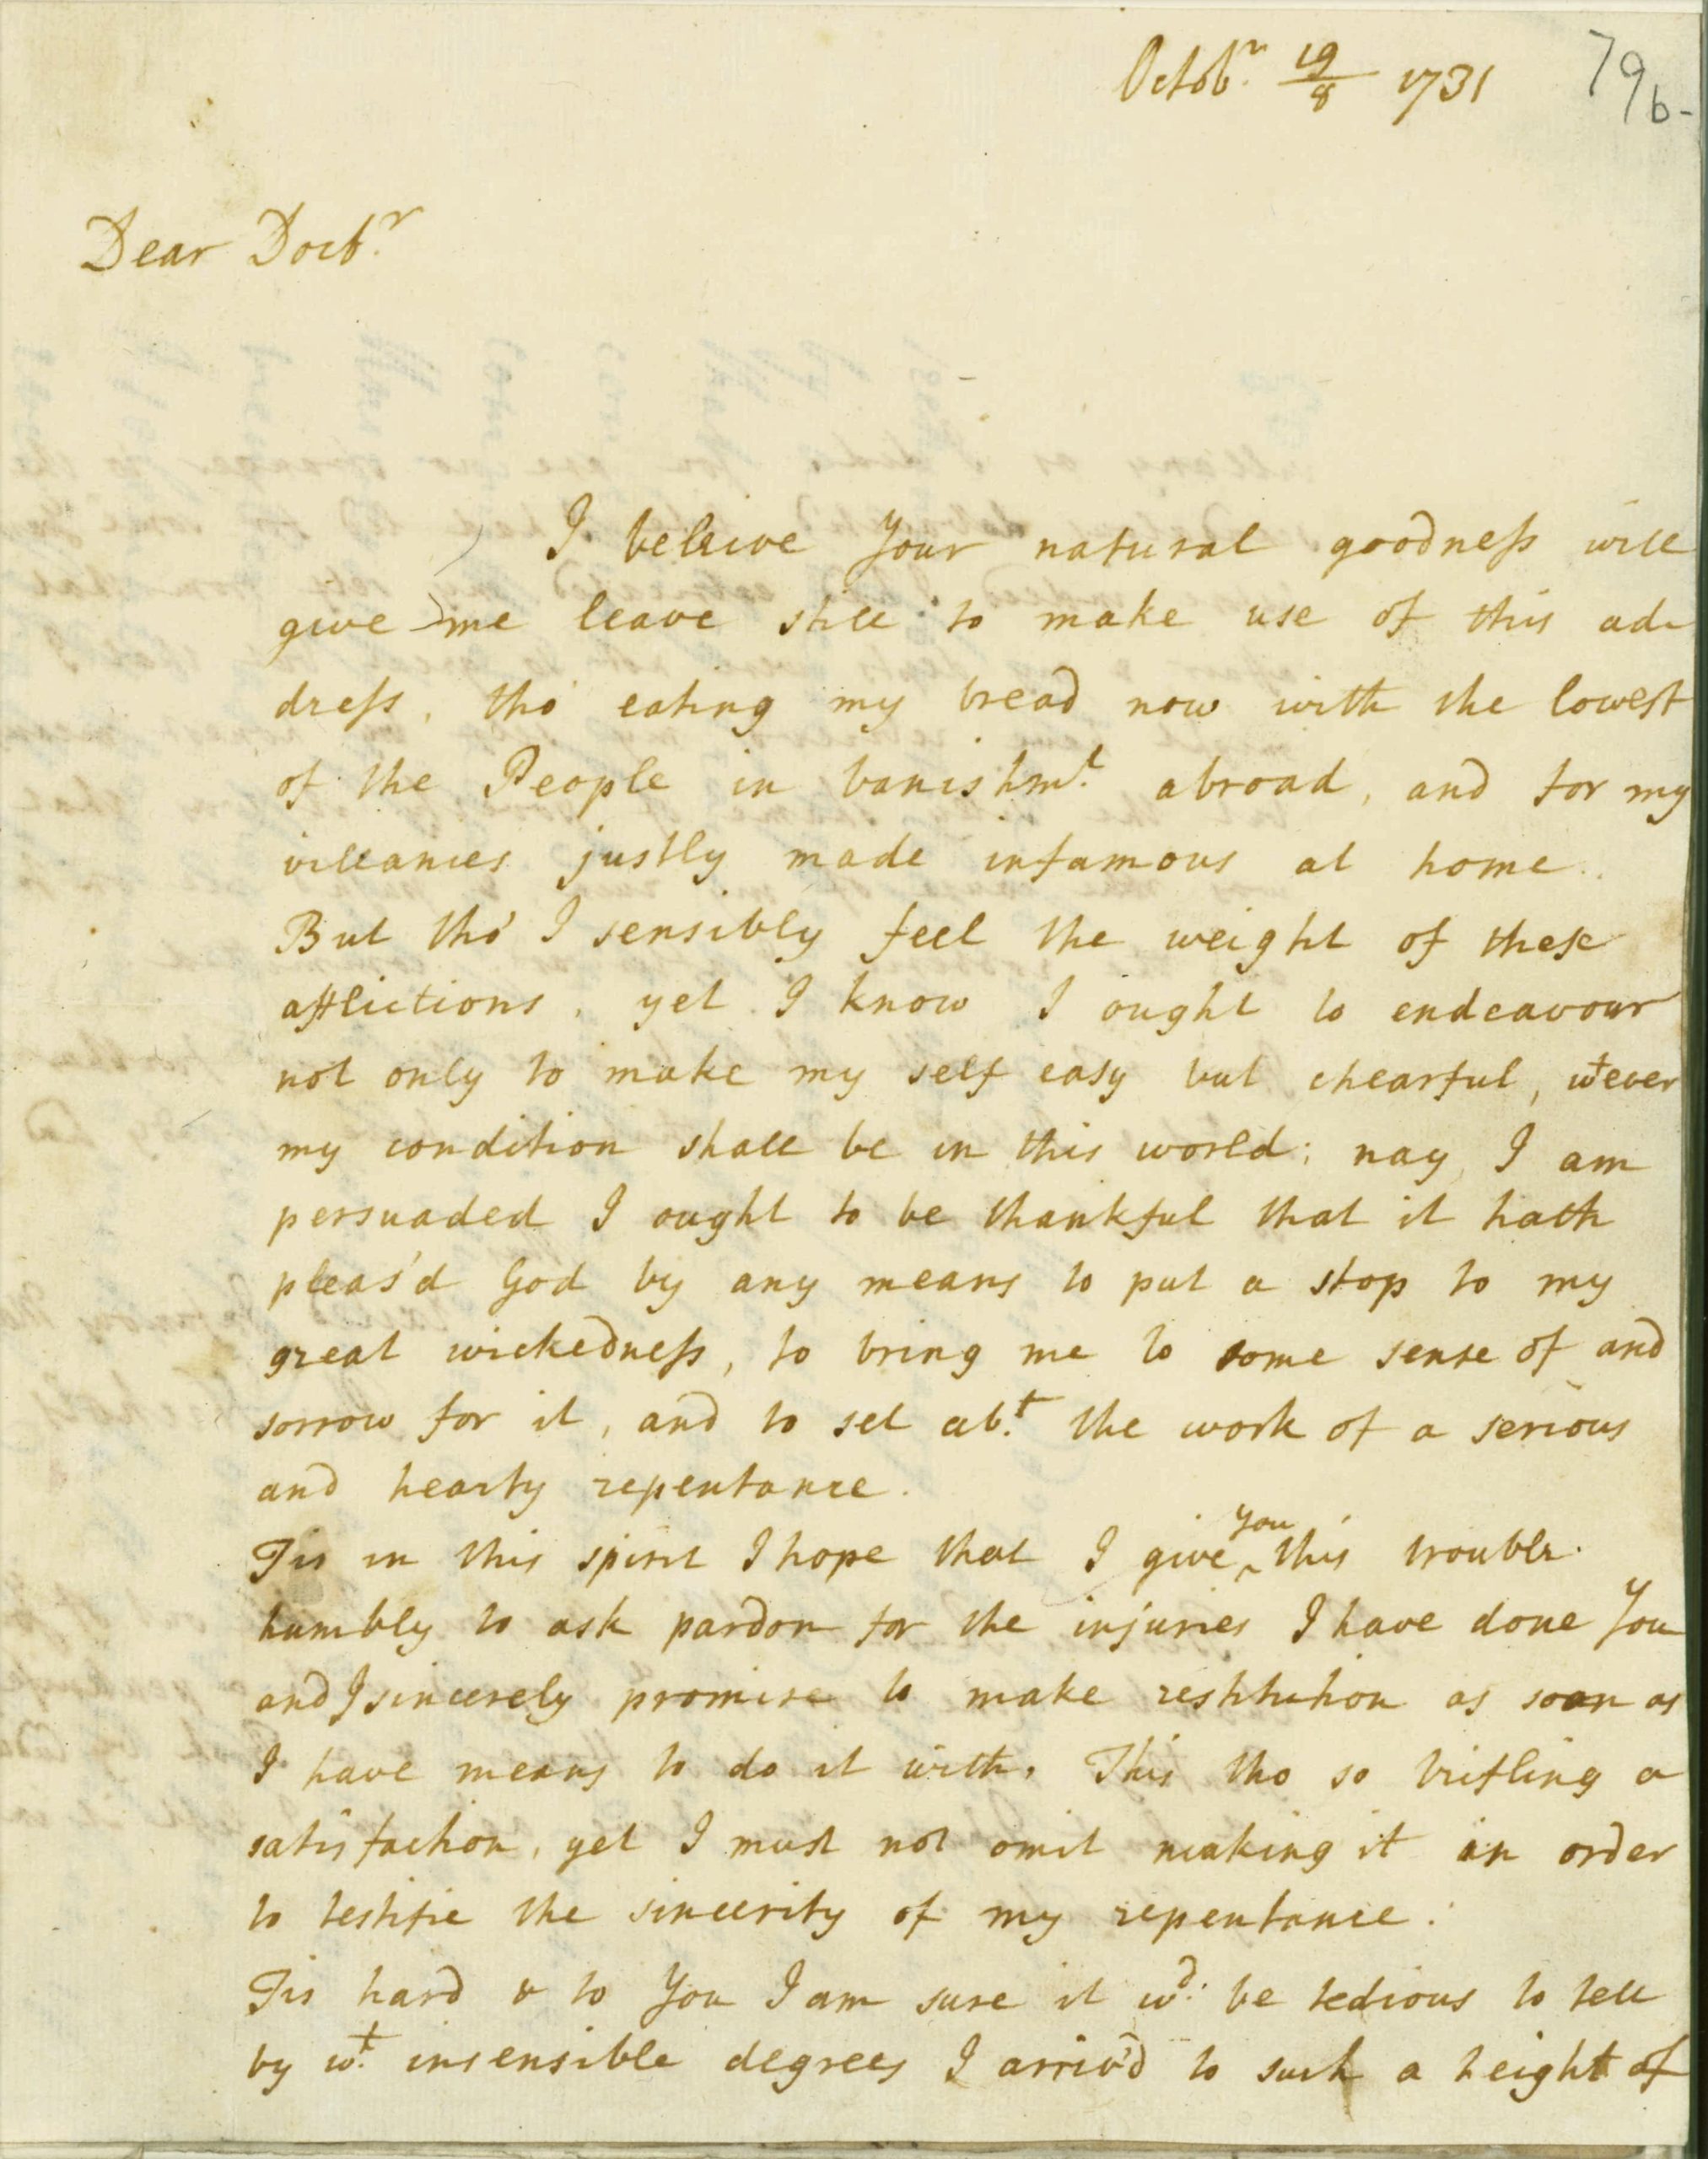 Octobr. 19/8 1731
79b-
Dear Doctr.
I beleive Your natural goodness will
give me leave still to make use of this ad-
dress, tho' eating my bread now with the lowest
of the People in banishmt. abroad, and for my
villanies justly made infamous at home.
But tho' I sensibly feel the weight of these
afflictions, yet I know I ought to endeavour
not only to make my self easy but chearful, wtever
my condition shall be in this world; nay, I am
persuaded I ought to be thankful that it hath
pleas'd God by any means to put a stop to my
great wickedness, to bring me to some sense of and
sorrow for it, and to set abt. the work of a serious
and hearty repentance.
Tis in this spirit I hope that I give you this trouble.
humbly to ask pardon for the injuries I have done You
and I sincerely promise to make restitution as soon as
I have means to do it with. This tho so trifling a
satisfaction, yet I must not omit making it in order
to testifie the sincerity of my repentance.
Tis hard & to You I am sure it wd. be tedious to tell
by wt. insensible degrees I arriv'd to such a height of